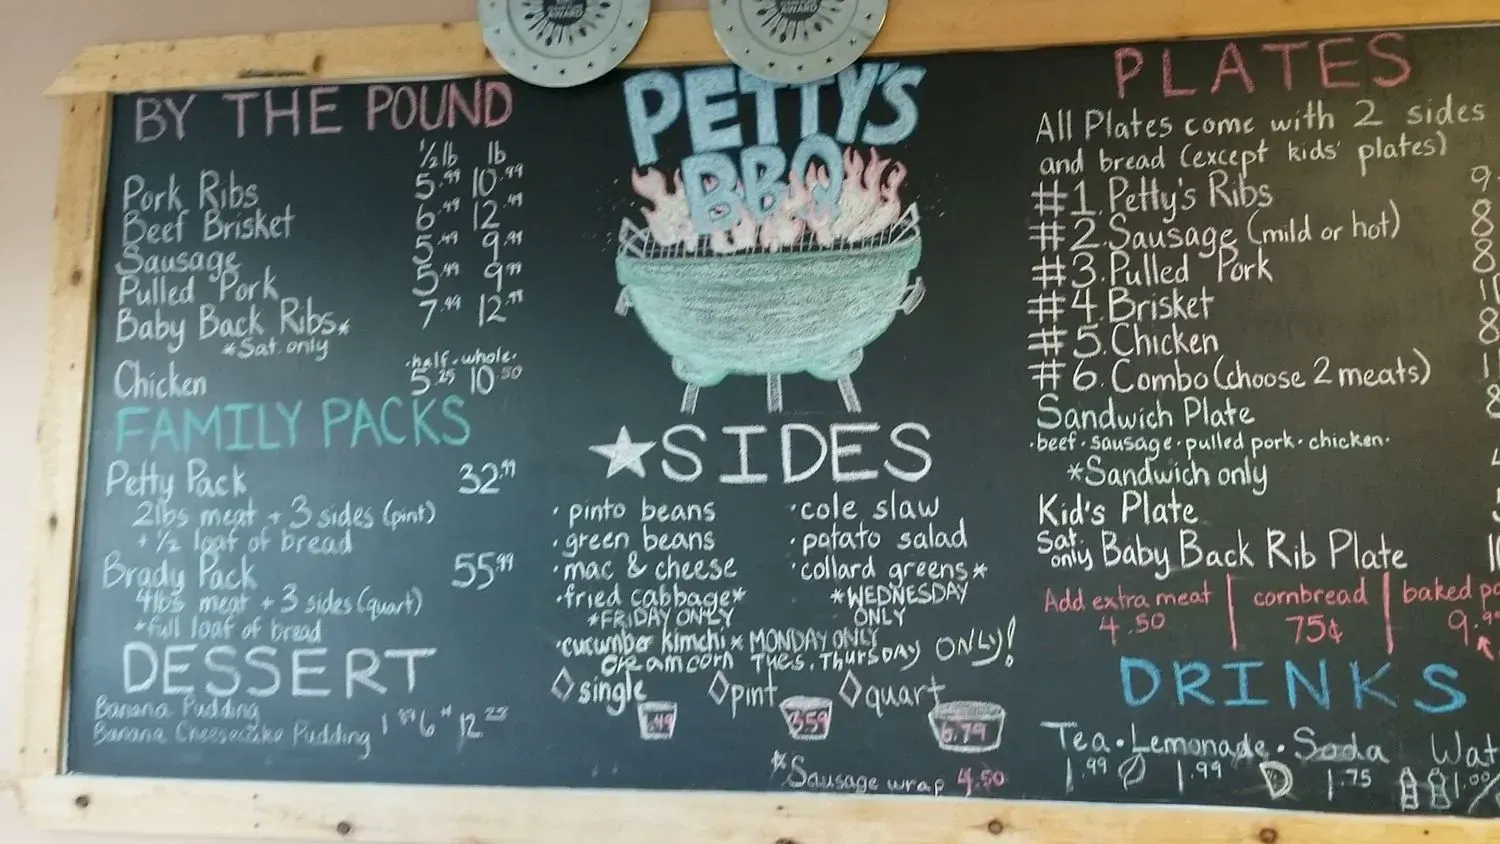 AWARD
BY THE POUND
½ lb lb
Pork Ribs 5.99 10.99
Beef Brisket 6.49 12.49
Sausage 5.49 9.99
Pulled Pork 5.99 9.99
Baby Back Ribs* 7.49 12.99
*Sat. only
·half·whole·
Chicken 5.25 10.50
FAMILY PACKS
Petty Pack 32.99
2lbs meat + 3 sides (pint)
+ ½ loaf of bread
Brady Pack 55.99
4lbs meat + 3 sides (quart)
+full loaf of bread
DESSERT
Banana Pudding
Banana Cheesecake Pudding
PETTY'S
BBQ
★SIDES
· pinto beans
· green beans
· mac & cheese
· fried cabbage*
*FRIDAY ONLY
· cole slaw
· potato salad
· collard greens*
*WEDNESDAY
ONLY
· cucumber kimchi * MONDAY ONLY
creamcorn TUES. THURSDAY ONLY!
◊ single ◊ pint ◊ quart
.49 3.59 6.79
*Sausage wrap 4.50
PLATES
All Plates come with 2 sides
and bread (except kids' plates)
#1. Petty's Ribs 9.
#2. Sausage (mild or hot) 8
#3. Pulled Pork 8
#4. Brisket
#5. Chicken 8
#6. Combo (choose 2 meats)
Sandwich Plate 8
·beef·sausage·pulled pork·chicken·
*Sandwich only
Kid's Plate
Sat. only Baby Back Rib Plate
Add extra meat | cornbread | baked
4.50 75¢ 9.
DRINKS
Tea · Lemonade · Soda Wat
1.99 1.99 1.75 1.00